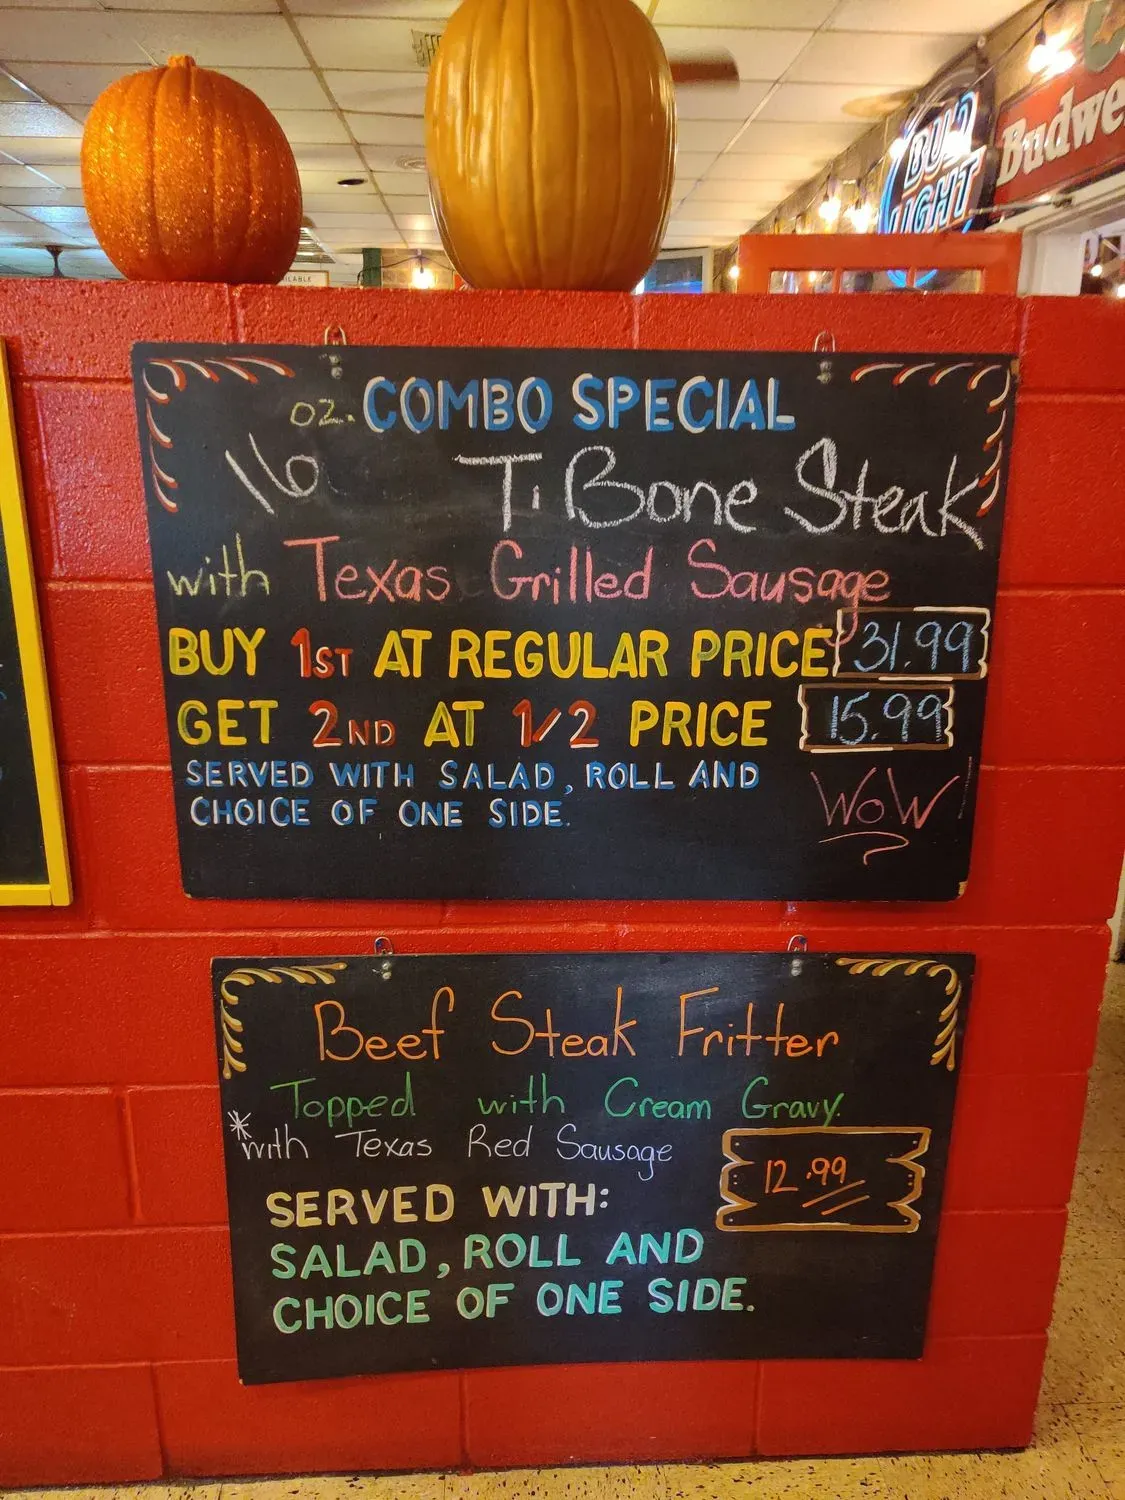 BUD LIGHT
Budwe
COMBO SPECIAL
16 oz. T. Bone Steak
with Texas Grilled Sausage
BUY 1ST AT REGULAR PRICE 31.99
GET 2ND AT 1/2 PRICE 15.99
SERVED WITH SALAD, ROLL AND
CHOICE OF ONE SIDE.
WoW
Beef Steak Fritter
Topped with Cream Gravy.
*with Texas Red Sausage
12.99
SERVED WITH:
SALAD, ROLL AND
CHOICE OF ONE SIDE.